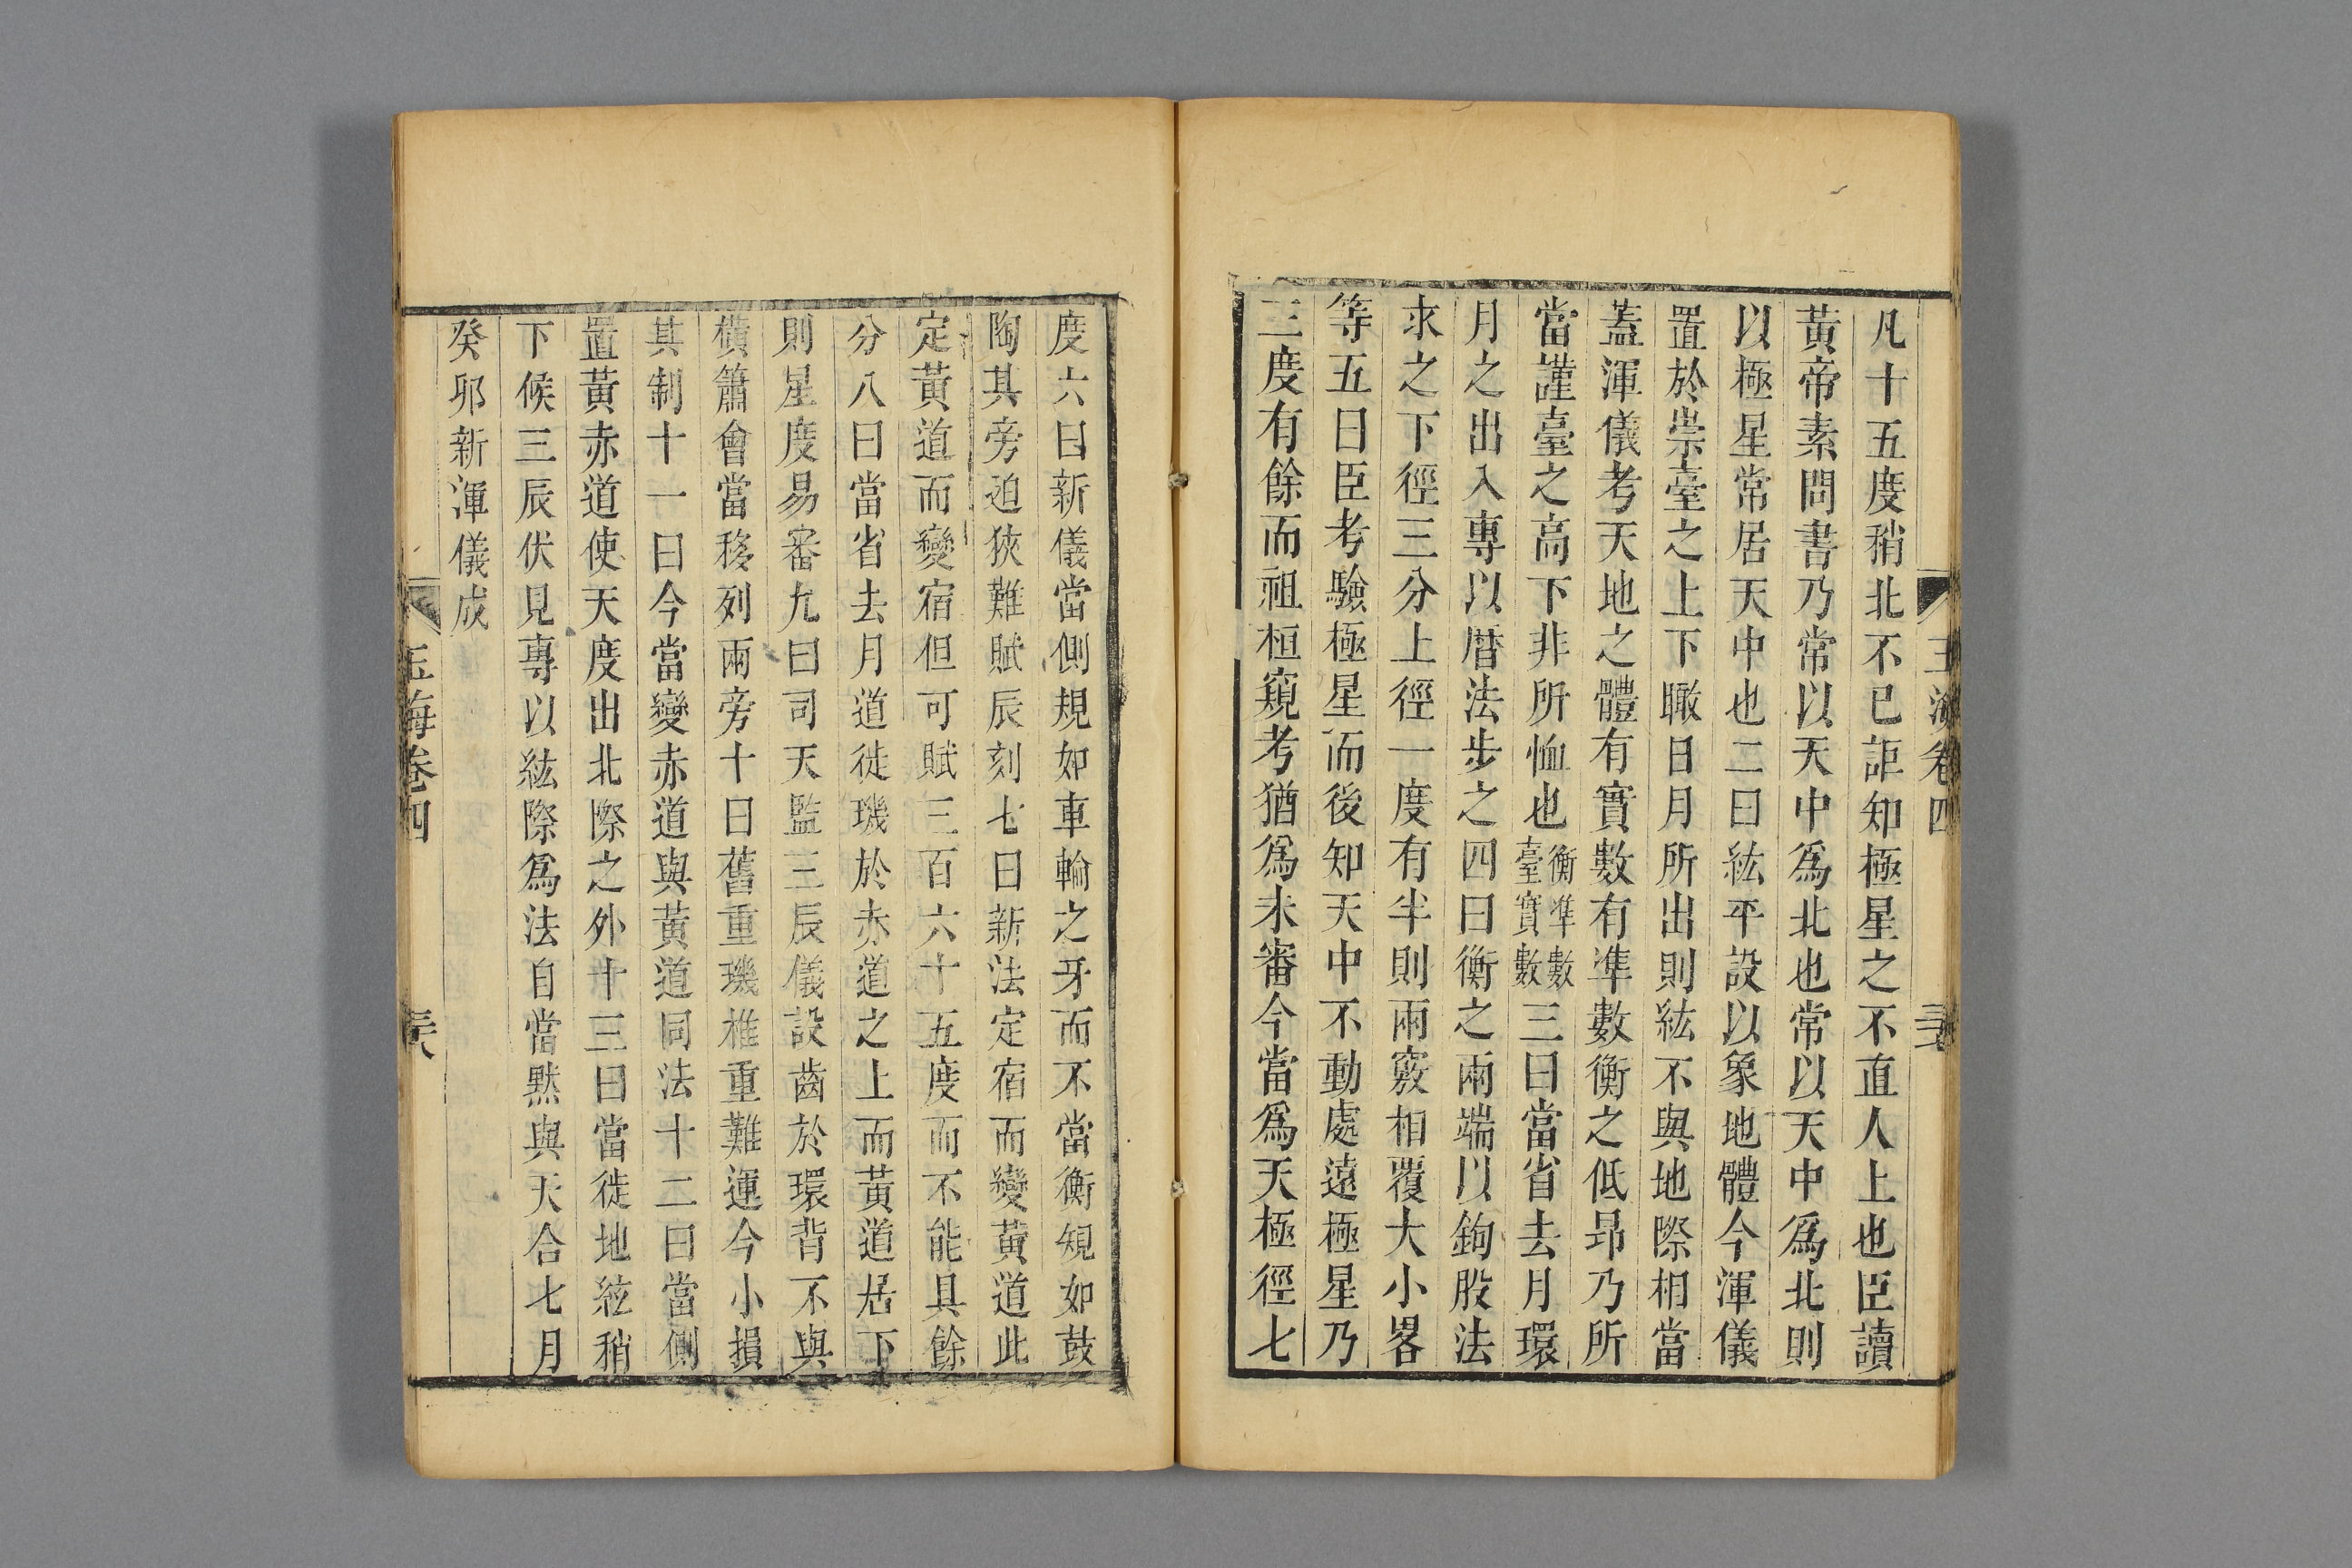 凡十五度稍北不已詎知極星之不直人上也臣讀
黃帝素問書乃常以天中爲北也常以天中爲北則
以極星常居天中也二曰紘平設以象地體今渾儀
置於崇臺之上下瞰日月所出則紘不與地際相當
蓋渾儀考天地之體有實數有準數衡之低昻乃所
當謹臺之高下非所恤也衡準數臺實數三曰當省去月環
月之出入專以曆法步之四曰衡之兩端以鉤股法
求之下徑三分上徑一度有半則兩竅相覆大小畧
等五曰臣考驗極星而後知天中不動處遠極星乃
三度有餘而祖桓窺考猶爲未審今當爲天極徑七
玉海卷四
度六曰新儀當側規如車輪之牙而不當衡規如鼓
陶其旁迫狹難賦辰刻七曰新法定宿而變黃道此
定黃道而變宿但可賦三百六十五度而不能具餘
分八曰當省去月道徙璣於赤道之上而黃道居下
則星度易審九曰司天監三辰儀設齒於環背不與
橫簫會當移列兩旁十曰舊重璣椎重難運今小損
其制十一曰今當變赤道與黃道同法十二曰當側
置黃赤道使天度出北際之外十三曰當徙地紘稍
下候三辰伏見專以紘際爲法自當默與天合七月
癸卯新渾儀成
玉海卷四